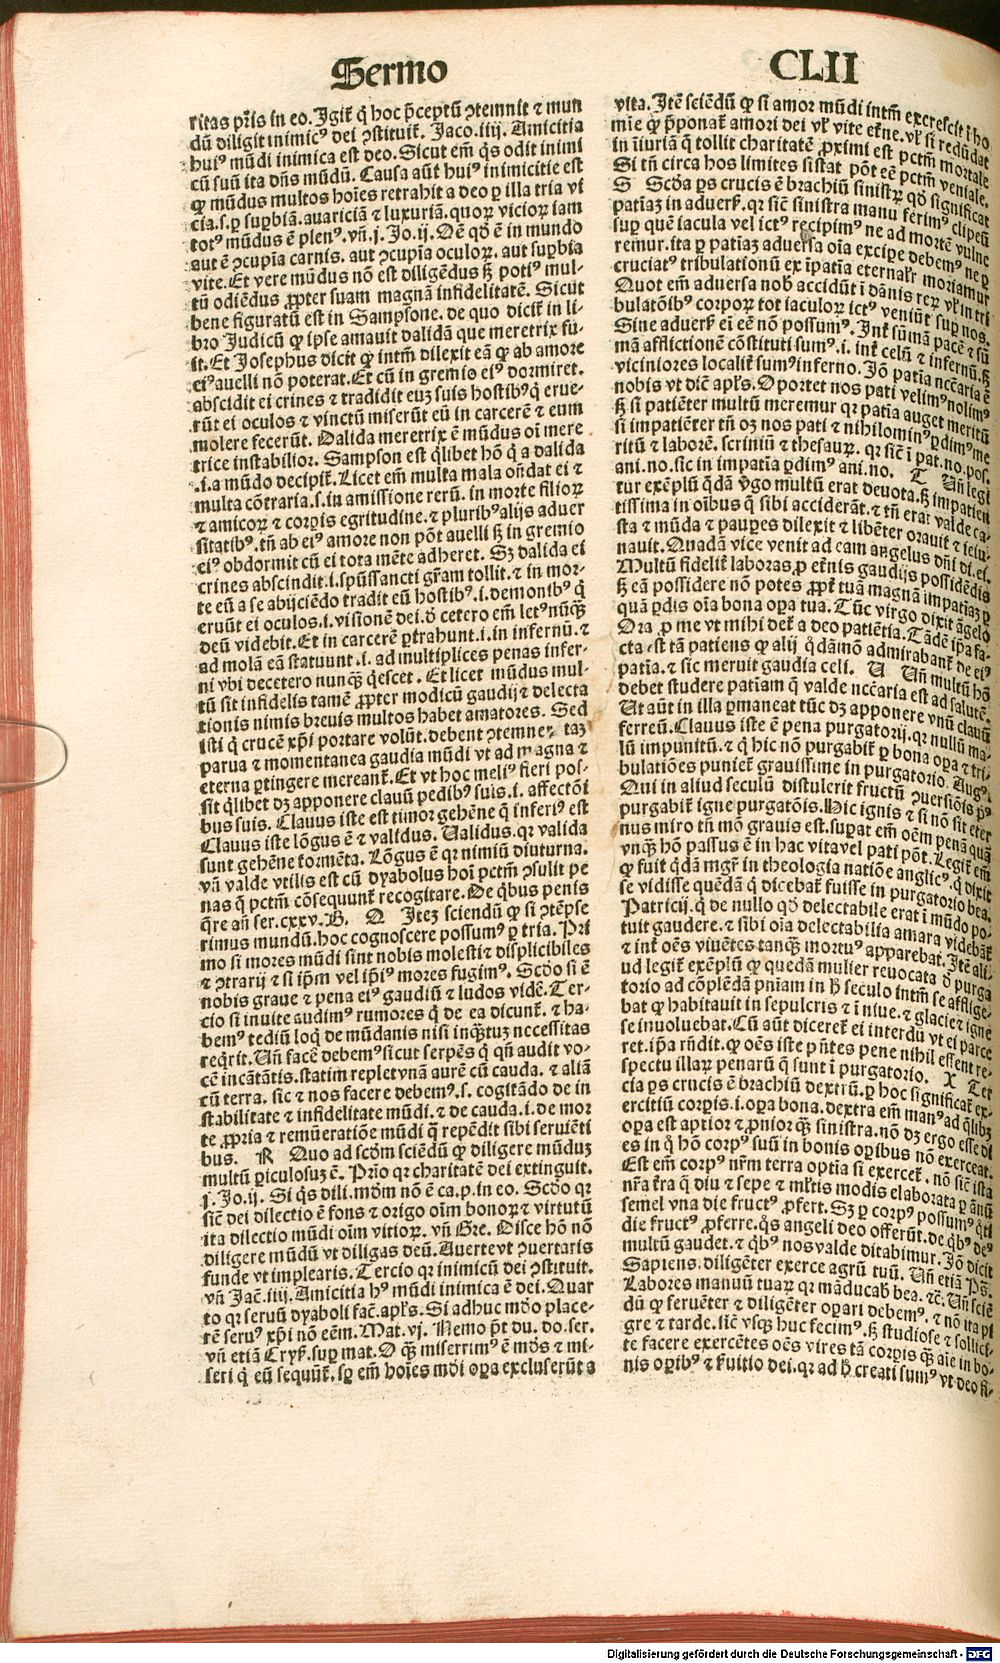 Sermo
CLII
ritas pr̄is in eo. Igit̄ q̄ hoc p̄ceptū ꝯtemnit ⁊ mun
dū diligit inimicꝰ dei ꝯstituit̄. Jaco.iiij. Amicitia
huiꝰ mūdi inimica est deo. Sicut em̄ q̄s odit inimi
cū suū ita dn̄s mūdū. Causa aūt huiꝰ inimicitie est
ꝙ mūdus multos hoīes retrahit a deo ꝑ illa tria vi
cia.s.ꝑ suꝑbiā.auariciā ⁊ luxuriā.quoꝝ vicioꝝ iam
totꝰ mūdus ē plenꝰ.vn̄.j.Jo.ij. Oē qd̄ ē in mundo
aut ē ꝯcupīa carnis. aut ꝯcupīa oculoꝝ. aut suꝑbia
vite. Et vere mūdus nō est diligēdus sꝫ potiꝰ mul-
tū odiēdus ꝓpter suam magnā infidelitatē. Sicut
bene figuratū est in Sampsone. de quo dicit̄ in li-
bro Judicū ꝙ ipse amauit dalidā que meretrix fu-
it. Et Josephus dicit ꝙ intm̄ dilexit eā ꝙ ab amore
eiꝰ auelli nō poterat. Et cū in gremio eiꝰ dormiret.
abscidit ei crines ⁊ tradidit euꝫ suis hostibꝰ q̄ erue-
rūt ei oculos ⁊ vinctū miserūt eū in carcerē ⁊ eum
molere fecerūt. Dalida meretrix ē mūdus oī mere
trice instabilior. Sampson est q̄libet hō q̄ a dalida
.i.a mūdo decipit̄. Licet em̄ multa mala on̄dat ei ⁊
multa cōtraria.s.in amissione rerū. in morte filioꝝ
⁊ amicoꝝ ⁊ corꝑis egritudine. ⁊ pluribꝰ alijs aduer
sitatibꝰ.tn̄ ab eiꝰ amore non pōt auelli sꝫ in gremio
eiꝰ obdormit cū ei tota mēte adheret. Sꝫ dalida ei
crines abscindit.i.spūssancti gr̄am tollit. ⁊ in mor-
te eū a se abijciēdo tradit eū hostibꝰ.i.demonibꝰ q̄
eruūt ei oculos.i.visionē dei. qꝛ cetero em̄ letꝰ nūqꝫ
deū videbit. Et in carcerē ꝑtrahunt.i.in infernū. ⁊
ad molā eā statuunt.i. ad multiplices penas infer-
ni vbi decetero nunqꝫ q̄escet. Et licet mūdus mul-
tū sit infidelis tamē ꝓpter modicū gaudij ⁊ delecta
tionis nimis breuis multos habet amatores. Sed
isti q̄ crucē xp̄i portare volūt. debent ꝯtemnere taꝫ
parua ⁊ momentanea gaudia mūdi vt ad magna ⁊
eterna ꝑtingere mereant̄. Et vt hoc meliꝰ fieri pos-
sit q̄libet dꝫ apponere clauū pedibꝰ suis.i. affectōi
bus suis. Clauus iste est timor gehēne q̄ inferiꝰ est
Clauus iste lōgus ē ⁊ validus. Validus.qꝛ valida
sunt gehēne tormēta. Lōgus ē qꝛ nimiū diuturna.
vn̄ valde vtilis est cū dyabolus hoī pctm̄ ꝯsulit pe
nas q̄ pctm̄ cōsequunt̄ recogitare. De q̄bus penis
q̄re an̄ ser.cxxv.B. Q Iteꝫ sciendū ꝙ si ꝯtēpse
rimus mundū.hoc cognoscere possumꝰ ꝑ tria. Pri
mo si mores mūdi sint nobis molesti ⁊ displicibiles
⁊ ꝯtrarij ⁊ si ip̄m vel ip̄iꝰ mores fugimꝰ. Scd̄o si ē
nobis graue ⁊ pena eiꝰ gaudiū ⁊ ludos vidē. Ter-
cio si inuite audimꝰ rumores q̄ de ea dicunt̄. ⁊ ha-
bemꝰ tediū loq̄ de mūdanis nisi inqꝫtuꝫ necessitas
req̄rit. Vn̄ facē debemꝰ sicut serpēs q̄ qn̄ audit vo-
cē incātātis.statim replet vnā aurē cū cauda. ⁊ aliā
cū terra. sic ⁊ nos facere debemꝰ.s. cogitādo de in
stabilitate ⁊ infidelitate mūdi. ⁊ de cauda.i.de mor
te ꝓpria ⁊ remūeratiōe mūdi q̄ repēdit sibi seruiēti
bus. R Quo ad scd̄m sciēdū ꝙ diligere mūduꝫ
multū ꝑiculosuꝫ ē. Prīo qꝛ charitatē dei extinguit.
j.Jo.ij. Si q̄s dili.mdm̄ nō ē ca.p.in eo. Scd̄o qꝛ
sic̄ dei dilectio ē fons ⁊ origo oīm bonoꝝ ⁊ virtutū
ita dilectio mūdi oīm vitioꝝ. vn̄ Gre. Disce hō nō
diligere mūdū vt diligas deū. Auerte vt ꝯuertaris
funde vt implearis. Tercio qꝛ inimicū dei ꝯstituit.
vn̄ Jac̄.iiij. Amicitia hꝰ mūdi inimica ē dei. Quar
to qꝛ seruū dyaboli fac̄.apl̄s. Si adhuc mdo place-
rē seruꝰ xp̄i nō eēm. Mat.vj. Nemo p̄t du. do. ser.
vn̄ etiā Cryſ.suꝑ mat. O qꝫ miserrimꝰ ē mōs ⁊ mi-
seri q̄ eū sequūt̄. sꝑ em̄ hoīes mōi oꝑa excluserūt a
vita. Itē sciēdū ꝙ si amor mūdi intm̄ excrescit ī ho
mīe ꝙ p̄ponat̄ amori dei vl̄ vite et̄ne. vl̄ si redūdat
in īiuriā q̄ tollit charitatē ꝓximi est pctm̄ mortale
Si tn̄ circa hos limites sistat pōt eē pctm̄ veniale.
S Scd̄a ꝑs crucis ē brachiū sinistꝝ qd̄ significat
patīaꝫ in aduerſ. qꝛ sic̄ sinistra manu ferimꝰ clipeū
suꝑ quē iacula vel ictꝰ recipimꝰ ne ad mortē vulne
remur. ita ꝑ patīaꝫ aduersa oīa excipe debemꝰ ne ꝑ
cruciatꝰ tribulationū ex īpatīa eternalr̄ moriamur
Quot em̄ aduersa nob̄ accidūt ī dānis reꝝ vl̄ in tri
bulatōibꝰ corpoꝝ tot iaculoꝝ ictꝰ veniūt suꝑ nos.
Sine aduerſ ei eē nō possumꝰ. Int̄ sūmā pacē ⁊ sū
mā afflictionē cōstituti sumꝰ.i. int̄ celū ⁊ infernū. sꝫ
viciniores localit̄ sumꝰ inferno. Jō patīa nccāria ē
nobis vt dic̄ apl̄s. Oportet nos pati velimꝰ nolimꝰ
sꝫ si patiēter multū meremur qꝛ patīa auget meritū
si impatiēter tn̄ oꝫ nos pati ⁊ nihilominꝰ ꝑdimꝰ me
ritū ⁊ laborē. scriniū ⁊ thesauꝝ. qꝛ sic̄ ī pat.no.pos.
ani.no. sic in impatīa ꝑdimꝰ ani.no. T Vn̄ legi
tur exēplū q̄dā v̄go multū erat deuota. sꝫ impatien
tissima in oībus q̄ sibi acciderāt. ⁊ tn̄ erat valde ca-
sta ⁊ mūda ⁊ pauꝑes dilexit ⁊ libēter orauit ⁊ ieiu-
nauit. Quadā vice venit ad eam angelus dn̄i di. ei.
Multū fidelit̄ laboras ꝓ et̄nis gaudijs possidēdis
sꝫ eā possidere nō potes ꝓpt̄ tuā magnā impatīaꝫ ꝑ
quā ꝑdis oīa bona oꝑa tua. Tūc virgo dixit āgelo
Ora ꝓ me vt mihi det̄ a deo patiētia. Tādē ip̄a fa-
cta est tā patiens ꝙ alij q̄dāmō admirabant̄ de eiꝰ
patīa. ⁊ sic meruit gaudia celi. V Vn̄ multū hō
debet studere patīam q̄ valde nccāria est ad salutē.
Vt aūt in illa ꝑmaneat tūc dꝫ apponere vnū clauū
ferreū. Clauus iste ē pena purgatorij. qꝛ nullū ma-
lū impunitū. ⁊ q̄ hic nō purgabit̄ ꝑ bona oꝑa ⁊ tri-
bulatiōes puniet̄ grauissime in purgatorio. Augꝰ.
Qui in aliud seculū distulerit fructū ꝯuersiōis pꝰ
purgabit̄ igne purgatōis. Hic ignis ⁊ si nō sit eter
nus miro tn̄ mō grauis est. suꝑat em̄ oēm penā quā
vnqꝫ hō passus ē in hac vita vel pati pōt. Legit̄ em̄
ꝙ fuit q̄dā mgr̄ in theologia natiōe anglicꝰ.q̄ dixit
se vidisse quēdā q̄ dicebat̄ fuisse in purgatorio bea.
Patricij. q̄ de nullo qd̄ delectabile erat ī mūdo po-
tuit gaudere. ⁊ sibi oīa delectabilia amara videbāt̄
⁊ int̄ oēs viuētes tanqꝫ mortuꝰ apparebat. Itē ali-
ud legit̄ exēplū ꝙ quedā mulier reuocata d̄ purga
torio ad cōplēdā pn̄iam in hꝭ seculo intm̄ se afflige-
bat ꝙ habitauit in sepulcris ⁊ ī niue. ⁊ glacie ⁊ igne
se inuoluebat. Cū aūt diceret̄ ei interdū vt ei parce
ret. ip̄a rn̄dit. ꝙ oēs iste pn̄tes pene nihil essent re-
spectu illaꝝ penarū q̄ sunt ī purgatorio. X Ter
cia ꝑs crucis ē brachiū dextrū. ꝑ hoc significat̄ ex-
ercitiū corꝑis.i.oꝑa bona. dextra em̄ manꝰ ad q̄libꝫ
oꝑa est aptior ⁊ ꝓnior qꝫ sinistra. nō dꝫ ergo esse di
es in q̄ hō corpꝰ suū in bonis oꝑibus nō exerceat.
Est em̄ corpꝰ nr̄m terra optīa si exercet̄. nō sic̄ ista
nr̄a t̄ra q̄ diu ⁊ sepe ⁊ ml̄tis modis elaborata ꝑ ānū
semel vna die fructꝰ ꝓfert. Sꝫ ꝑ corpꝰ possumꝰ q̄ti
die fructꝰ ꝓferre. q̄s angeli deo offerūt. de q̄bꝰ deꝰ
multū gaudet. ⁊ q̄bꝰ nos valde ditabimur. Jō dicit
Sapiens. diligēter exerce agrū tuū. Vn̄ etiā Pꝭ.
Labores manuū tuaꝝ qꝛ māducab̄ bea. ⁊c̄. Vn̄ sciē
dū ꝙ feruēter ⁊ diligēter oꝑari debemꝰ. ⁊ nō ita pi
gre ⁊ tarde. sic̄ vsqꝫ huc fecimꝰ. sꝫ studiose ⁊ sollici-
te facere exercētes oēs vires tā corꝑis qꝫ aīe in bo-
nis oꝑibꝰ ⁊ s̄uitio dei. qꝛ ad hꝭ creati sumꝰ vt deo si-
Digitalisierung gefördert durch die Deutsche Forschungsgemeinschaft - DFG